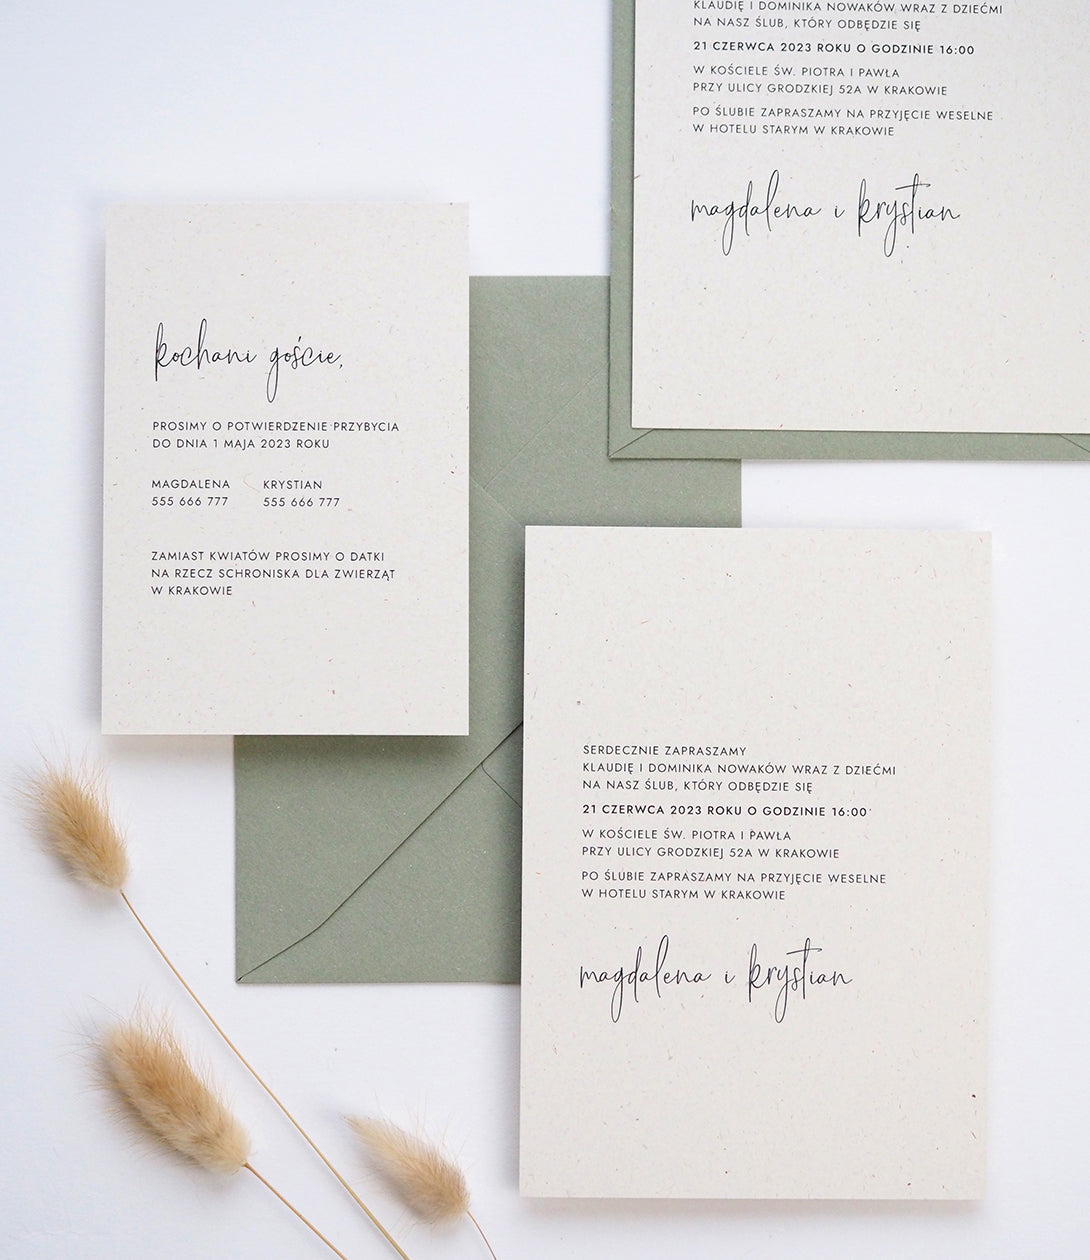 KLAUDIĘ I DOMINIKA NOWAKÓW WRAZ Z DZIEĆMI
NA NASZ ŚLUB, KTÓRY ODBĘDZIE SIĘ
21 CZERWCA 2023 ROKU O GODZINIE 16:00
W KOŚCIELE ŚW. PIOTRA I PAWŁA
PRZY ULICY GRODZKIEJ 52A W KRAKOWIE
PO ŚLUBIE ZAPRASZAMY NA PRZYJĘCIE WESELNE
W HOTELU STARYM W KRAKOWIE
magdalena i krystian
kochani goście,
PROSIMY O POTWIERDZENIE PRZYBYCIA
DO DNIA 1 MAJA 2023 ROKU
MAGDALENA KRYSTIAN
555 666 777 555 666 777
ZAMIAST KWIATÓW PROSIMY O DATKI
NA RZECZ SCHRONISKA DLA ZWIERZĄT
W KRAKOWIE
SERDECZNIE ZAPRASZAMY
KLAUDIĘ I DOMINIKA NOWAKÓW WRAZ Z DZIEĆMI
NA NASZ ŚLUB, KTÓRY ODBĘDZIE SIĘ
21 CZERWCA 2023 ROKU O GODZINIE 16:00
W KOŚCIELE ŚW. PIOTRA I PAWŁA
PRZY ULICY GRODZKIEJ 52A W KRAKOWIE
PO ŚLUBIE ZAPRASZAMY NA PRZYJĘCIE WESELNE
W HOTELU STARYM W KRAKOWIE
magdalena i krystian